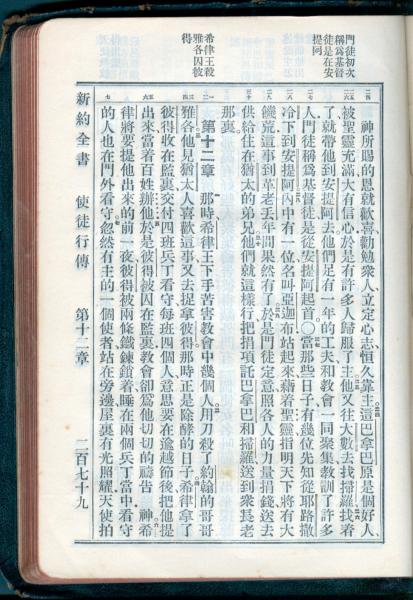 門徒初次
稱爲基督
徒是在安
提阿
希律王殺
雅各囚彼
得
神所賜的恩就歡喜勸勉衆人立定心志恒久靠主這巴拿巴原是個好人
被聖靈充滿大有信心於是有許多人歸服了主他又往大數去找掃羅找着
了就帶他到安提阿去他們足有一年的工夫和教會一同聚集教訓了許多
人門徒稱爲基督徒是從安提阿起首〇當那些日子有幾位先知從耶路撒
冷下到安提阿內中有一位名叫亞迦布站起來藉着聖靈指明天下將有大
饑荒這事到革老丟年間果然有了於是門徒定意照各人的力量捐錢送去
供給住在猶太的弟兄他們就這樣行把捐項託巴拿巴和掃羅送到衆長老
那裏
第十二章 那時希律王下手苦害教會中幾個人用刀殺了約翰的哥哥
雅各他見猶太人喜歡這事又去捉拿彼得那時正是除酵的日子希律拿了
彼得收在監裏交付四班兵丁看守每班四個人意思要在逾越節後把他提
出來當着百姓辦他於是彼得被囚在監裏教會卻爲他切切的禱告 神希
律將要提他出來的前一夜彼得被兩條鐵鍊鎖着睡在兩個兵丁當中看守
的人也在門外看守忽然有主的一個使者站在旁邊屋裏有光照耀天使拍
新約全書 使徒行傳 第十二章 二百七十九